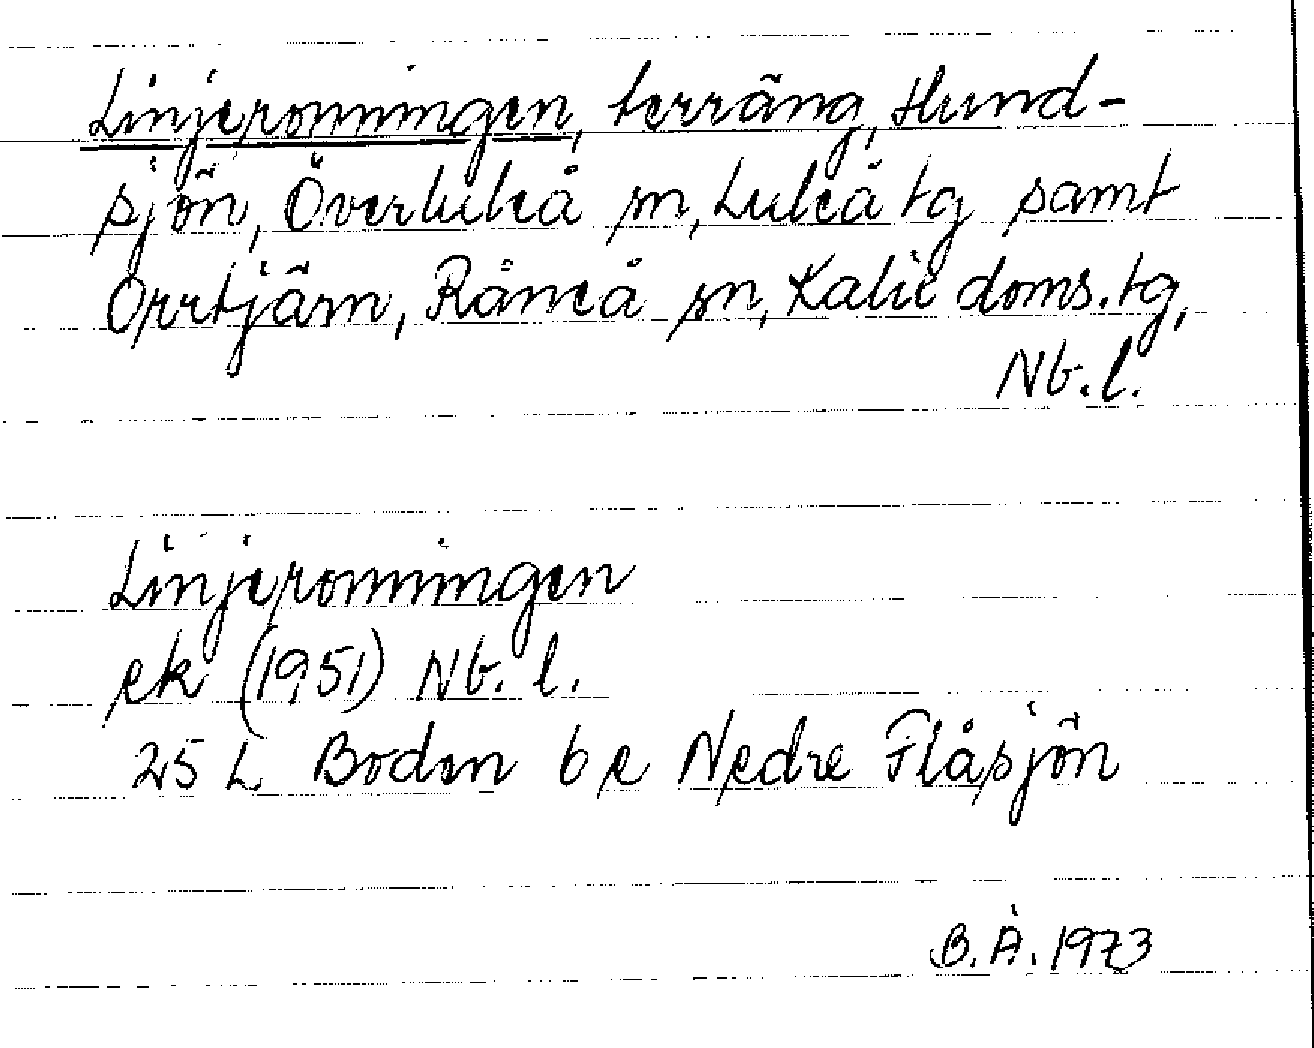 Linjeronningen, terräng, Hund-
sjön, Överluleå sn, Luleå tg samt
Orrtjärn, Råneå sn, Kalix doms.tg,
Nb.l.
Linjeronningen
ek (1951) Nb. l.
25 L Boden 6 e Nedre Flåsjön
B.Å. 1973